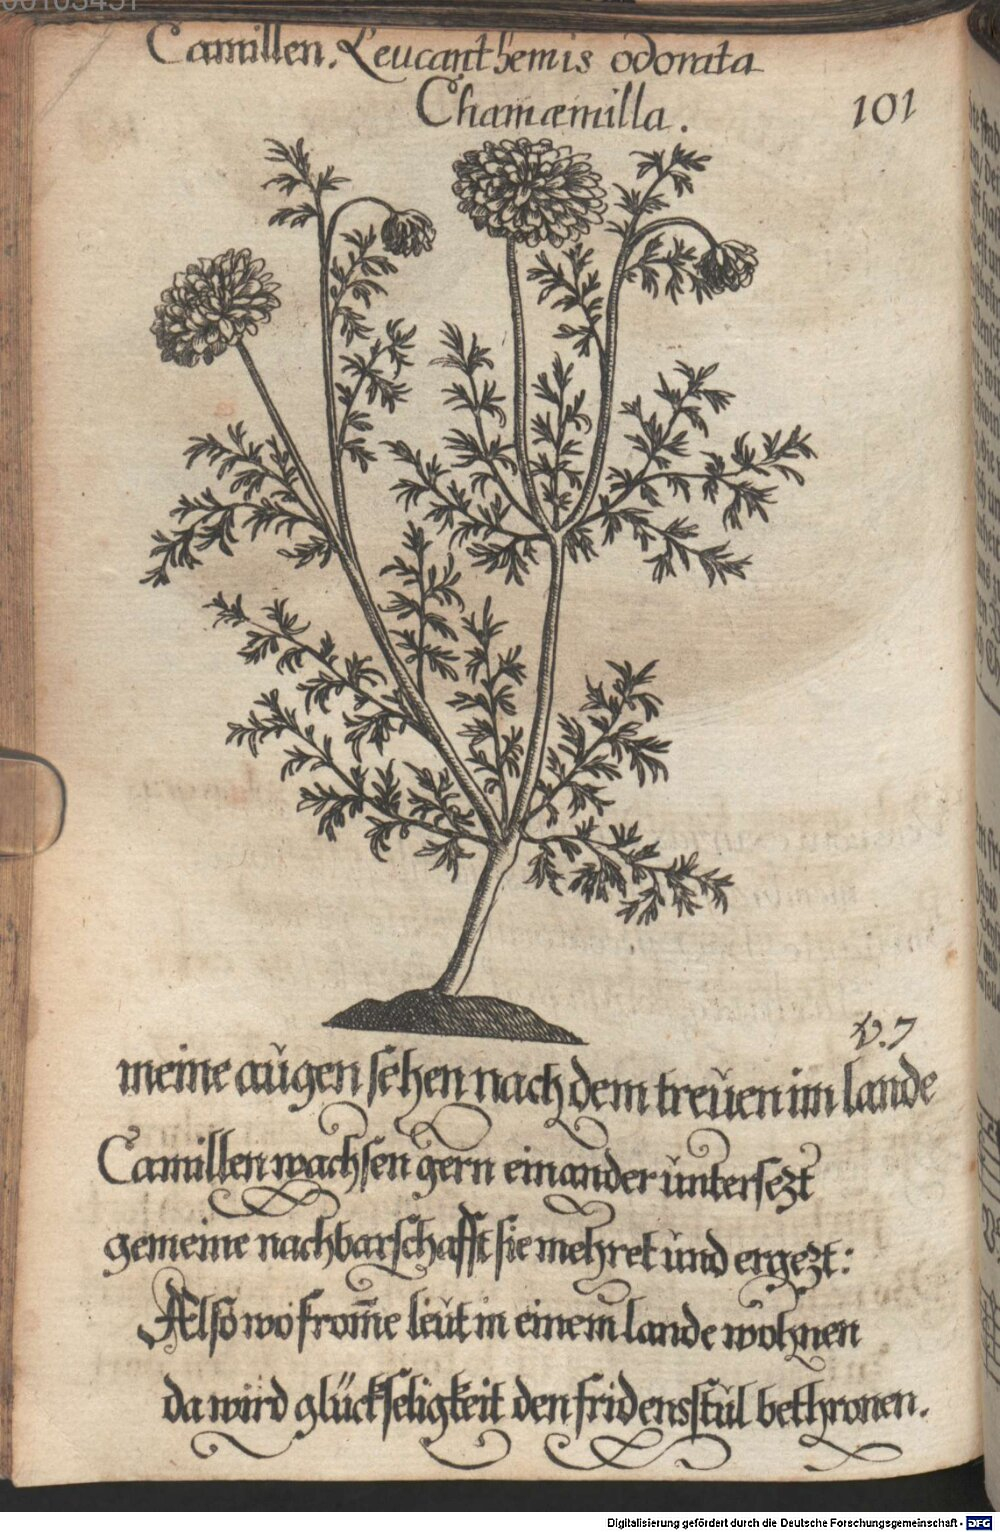 00103457
Camillen. Leucanthemis odorata
Chamæmilla.
101
v. 7
meine aŭgen sehen nach dem treŭen im lande
Camillen wachsen gern einander ŭntersezt
gemeine nachbarschafft sie mehret ŭnd ergezt:
Also wo from̅e leŭt in einem lande wohnen
da wird glückseligkeit den fridensstŭl bethronen.
Digitalisierung gefördert durch die Deutsche Forschungsgemeinschaft - DFG